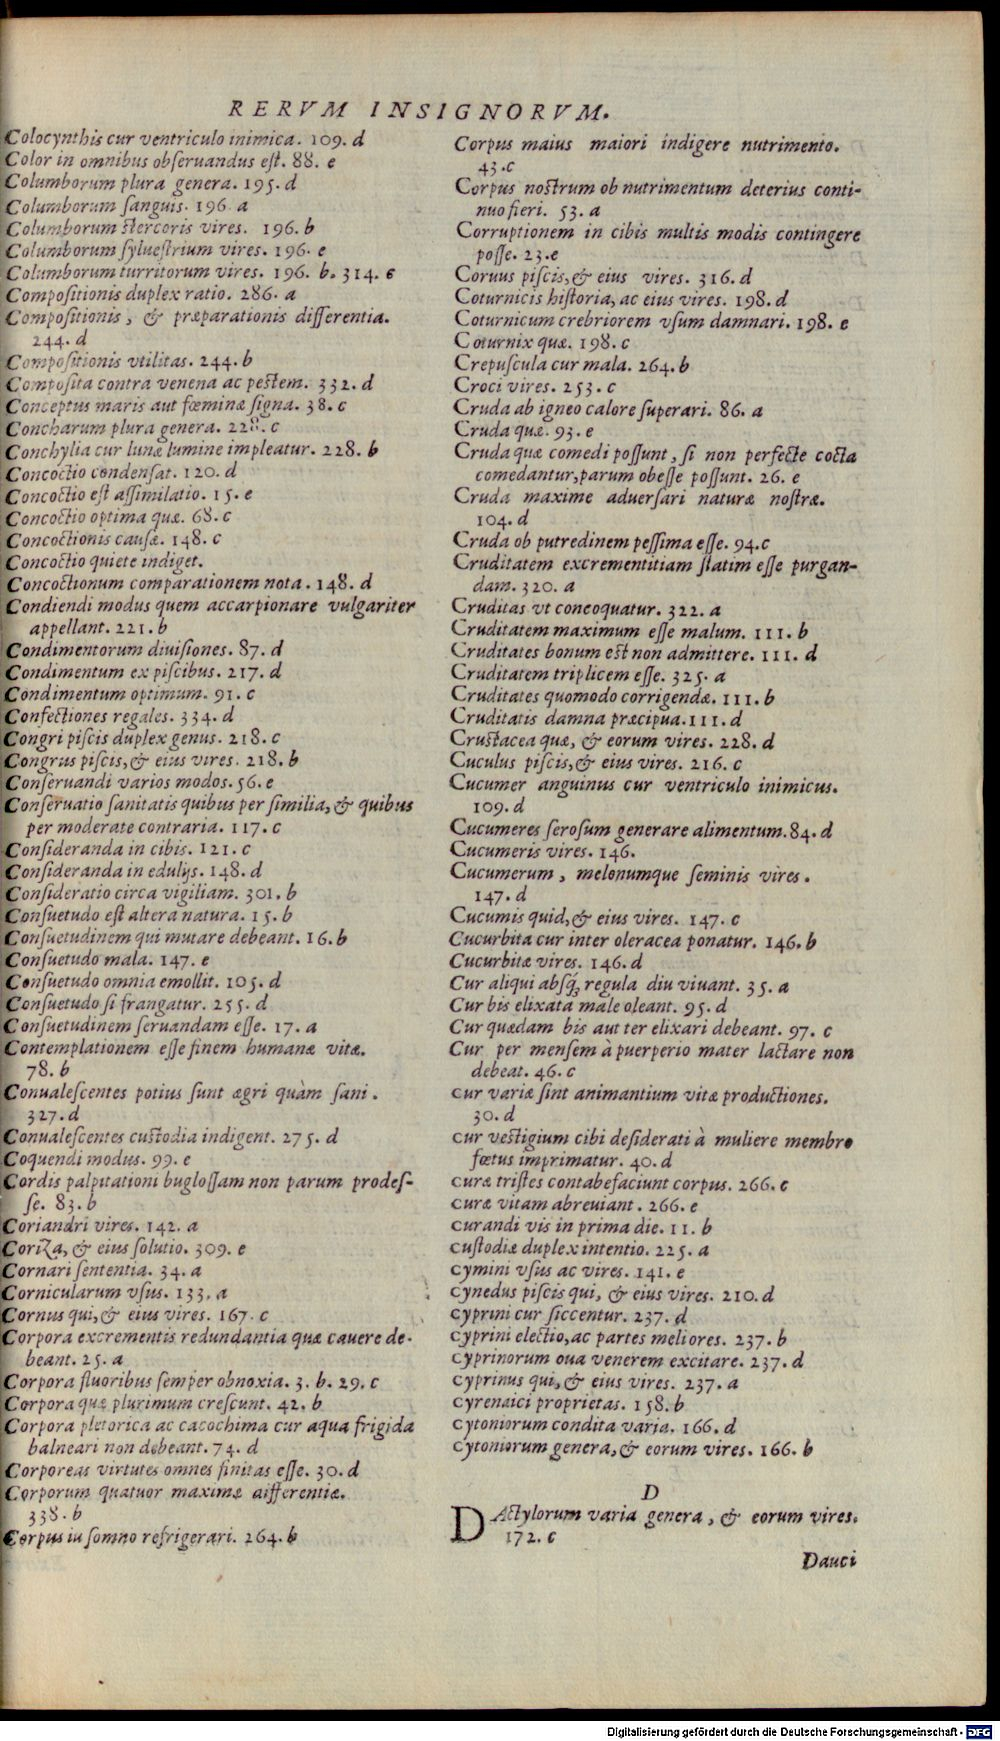 RERVM INSIGNORVM.
Colocynthis cur ventriculo inimica. 109. d
Color in omnibus obſeruandus eſt. 88. e
Columborum plura genera. 195. d
Columborum ſanguis. 196 a
Columborum ſtercoris vires. 196. b
Columborum ſylueſtrium vires. 196. e
Columborum turritorum vires. 196. b. 314. e
Compoſitionis duplex ratio. 286. a
Compoſitionis, & præparationis differentia.
244. d
Compoſitionis vtilitas. 244. b
Compoſita contra venena ac peſtem. 332. d
Conceptus maris aut fœminæ ſigna. 38. c
Concharum plura genera. 228. c
Conchylia cur lunæ lumine impleatur. 228. b
Concoctio condenſat. 120. d
Concoctio eſt aſſimilatio. 15. e
Concoctio optima quæ. 68. c
Concoctionis cauſæ. 148. c
Concoctio quiete indiget.
Concoctionum comparationem nota. 148. d
Condiendi modus quem accarpionare vulgariter
appellant. 221. b
Condimentorum diuiſiones. 87. d
Condimentum ex piſcibus. 217. d
Condimentum optimum. 91. c
Confectiones regales. 334. d
Congri piſcis duplex genus. 218. c
Congrus piſcis, & eius vires. 218. b
Conſeruandi varios modos. 56. e
Conſeruatio ſanitatis quibus per ſimilia, & quibus
per moderate contraria. 117. c
Conſideranda in cibis. 121. c
Conſideranda in edulijs. 148. d
Conſideratio circa vigiliam. 301. b
Conſuetudo eſt altera natura. 15. b
Conſuetudinem qui mutare debeant. 16. b
Conſuetudo mala. 147. e
Conſuetudo omnia emollit. 105. d
Conſuetudo ſi frangatur. 255. d
Conſuetudinem ſeruandam eſſe. 17. a
Contemplationem eſſe finem humanæ vitæ.
78. b
Conualeſcentes potius ſunt ægri quàm ſani.
327. d
Conualeſcentes cuſtodia indigent. 275. d
Coquendi modus. 99. e
Cordis palpitationi bugloſſam non parum prodeſ-
ſe. 83. b
Coriandri vires. 142. a
Coriza, & eius ſolutio. 309. e
Cornari ſententia. 34. a
Cornicularum vſus. 133. a
Cornus qui, & eius vires. 167. c
Corpora excrementis redundantia quæ cauere de-
beant. 25. a
Corpora fluoribus ſemper obnoxia. 3. b. 29. c
Corpora quæ plurimum creſcunt. 42. b
Corpora pletorica ac cacochima cur aqua frigida
balneari non debeant. 74. d
Corporeas virtutes omnes finitas eſſe. 30. d
Corporum quatuor maximæ differentiæ.
338. b
Corpus in ſomno refrigerari. 264. b
Corpus maius maiori indigere nutrimento.
43. c
Corpus noſtrum ob nutrimentum deterius conti-
nuo fieri. 53. a
Corruptionem in cibis multis modis contingere
poſſe. 23. e
Coruus piſcis, & eius vires. 316. d
Coturnicis hiſtoria, ac eius vires. 198. d
Coturnicum crebriorem vſum damnari. 198. e
Coturnix quæ. 198. c
Crepuſcula cur mala. 264. b
Croci vires. 253. c
Cruda ab igneo calore ſuperari. 86. a
Cruda quæ. 93. e
Cruda quæ comedi poſſunt, ſi non perfecte cocta
comedantur, parum obeſſe poſſunt. 26. e
Cruda maxime aduerſari naturæ noſtræ.
104. d
Cruda ob putredinem peſſima eſſe. 94. c
Cruditatem excrementitiam ſtatim eſſe purgan-
dam. 320. a
Cruditas vt concoquatur. 322. a
Cruditatem maximum eſſe malum. 111. b
Cruditates bonum eſt non admittere. 111. d
Cruditatem triplicem eſſe. 325. a
Cruditates quomodo corrigendæ. 111. b
Cruditatis damna præcipua. 111. d
Cruſtacea quæ, & eorum vires. 228. d
Cuculus piſcis, & eius vires. 216. c
Cucumer anguinus cur ventriculo inimicus.
109. d
Cucumeres ſeroſum generare alimentum. 84. d
Cucumeris vires. 146.
Cucumerum, melonumque ſeminis vires.
147. d
Cucumis quid, & eius vires. 147. c
Cucurbita cur inter oleracea ponatur. 146. b
Cucurbitæ vires. 146. d
Cur aliqui abſq; regula diu viuant. 35. a
Cur bis elixata male oleant. 95. d
Cur quædam bis aut ter elixari debeant. 97. c
Cur per menſem à puerperio mater lactare non
debeat. 46. c
cur variæ ſint animantium vitæ productiones.
30. d
cur veſtigium cibi deſiderati à muliere membro
fœtus imprimatur. 40. d
curæ triſtes contabefaciunt corpus. 266. c
curæ vitam abreuiant. 266. e
curandi vis in prima die. 11. b
cuſtodiæ duplex intentio. 225. a
cymini vſus ac vires. 141. e
cynedus piſcis qui, & eius vires. 210. d
cyprini cur ſiccentur. 237. d
cyprini electio, ac partes meliores. 237. b
cyprinorum oua venerem excitare. 237. d
cyprinus qui, & eius vires. 237. a
cyrenaici proprietas. 158. b
cytoniorum condita varia. 166. d
cytoniorum genera, & eorum vires. 166. b
D
DActylorum varia genera, & eorum vires.
172. c
Dauci
Digitalisierung gefördert durch die Deutsche Forschungsgemeinschaft - DFG